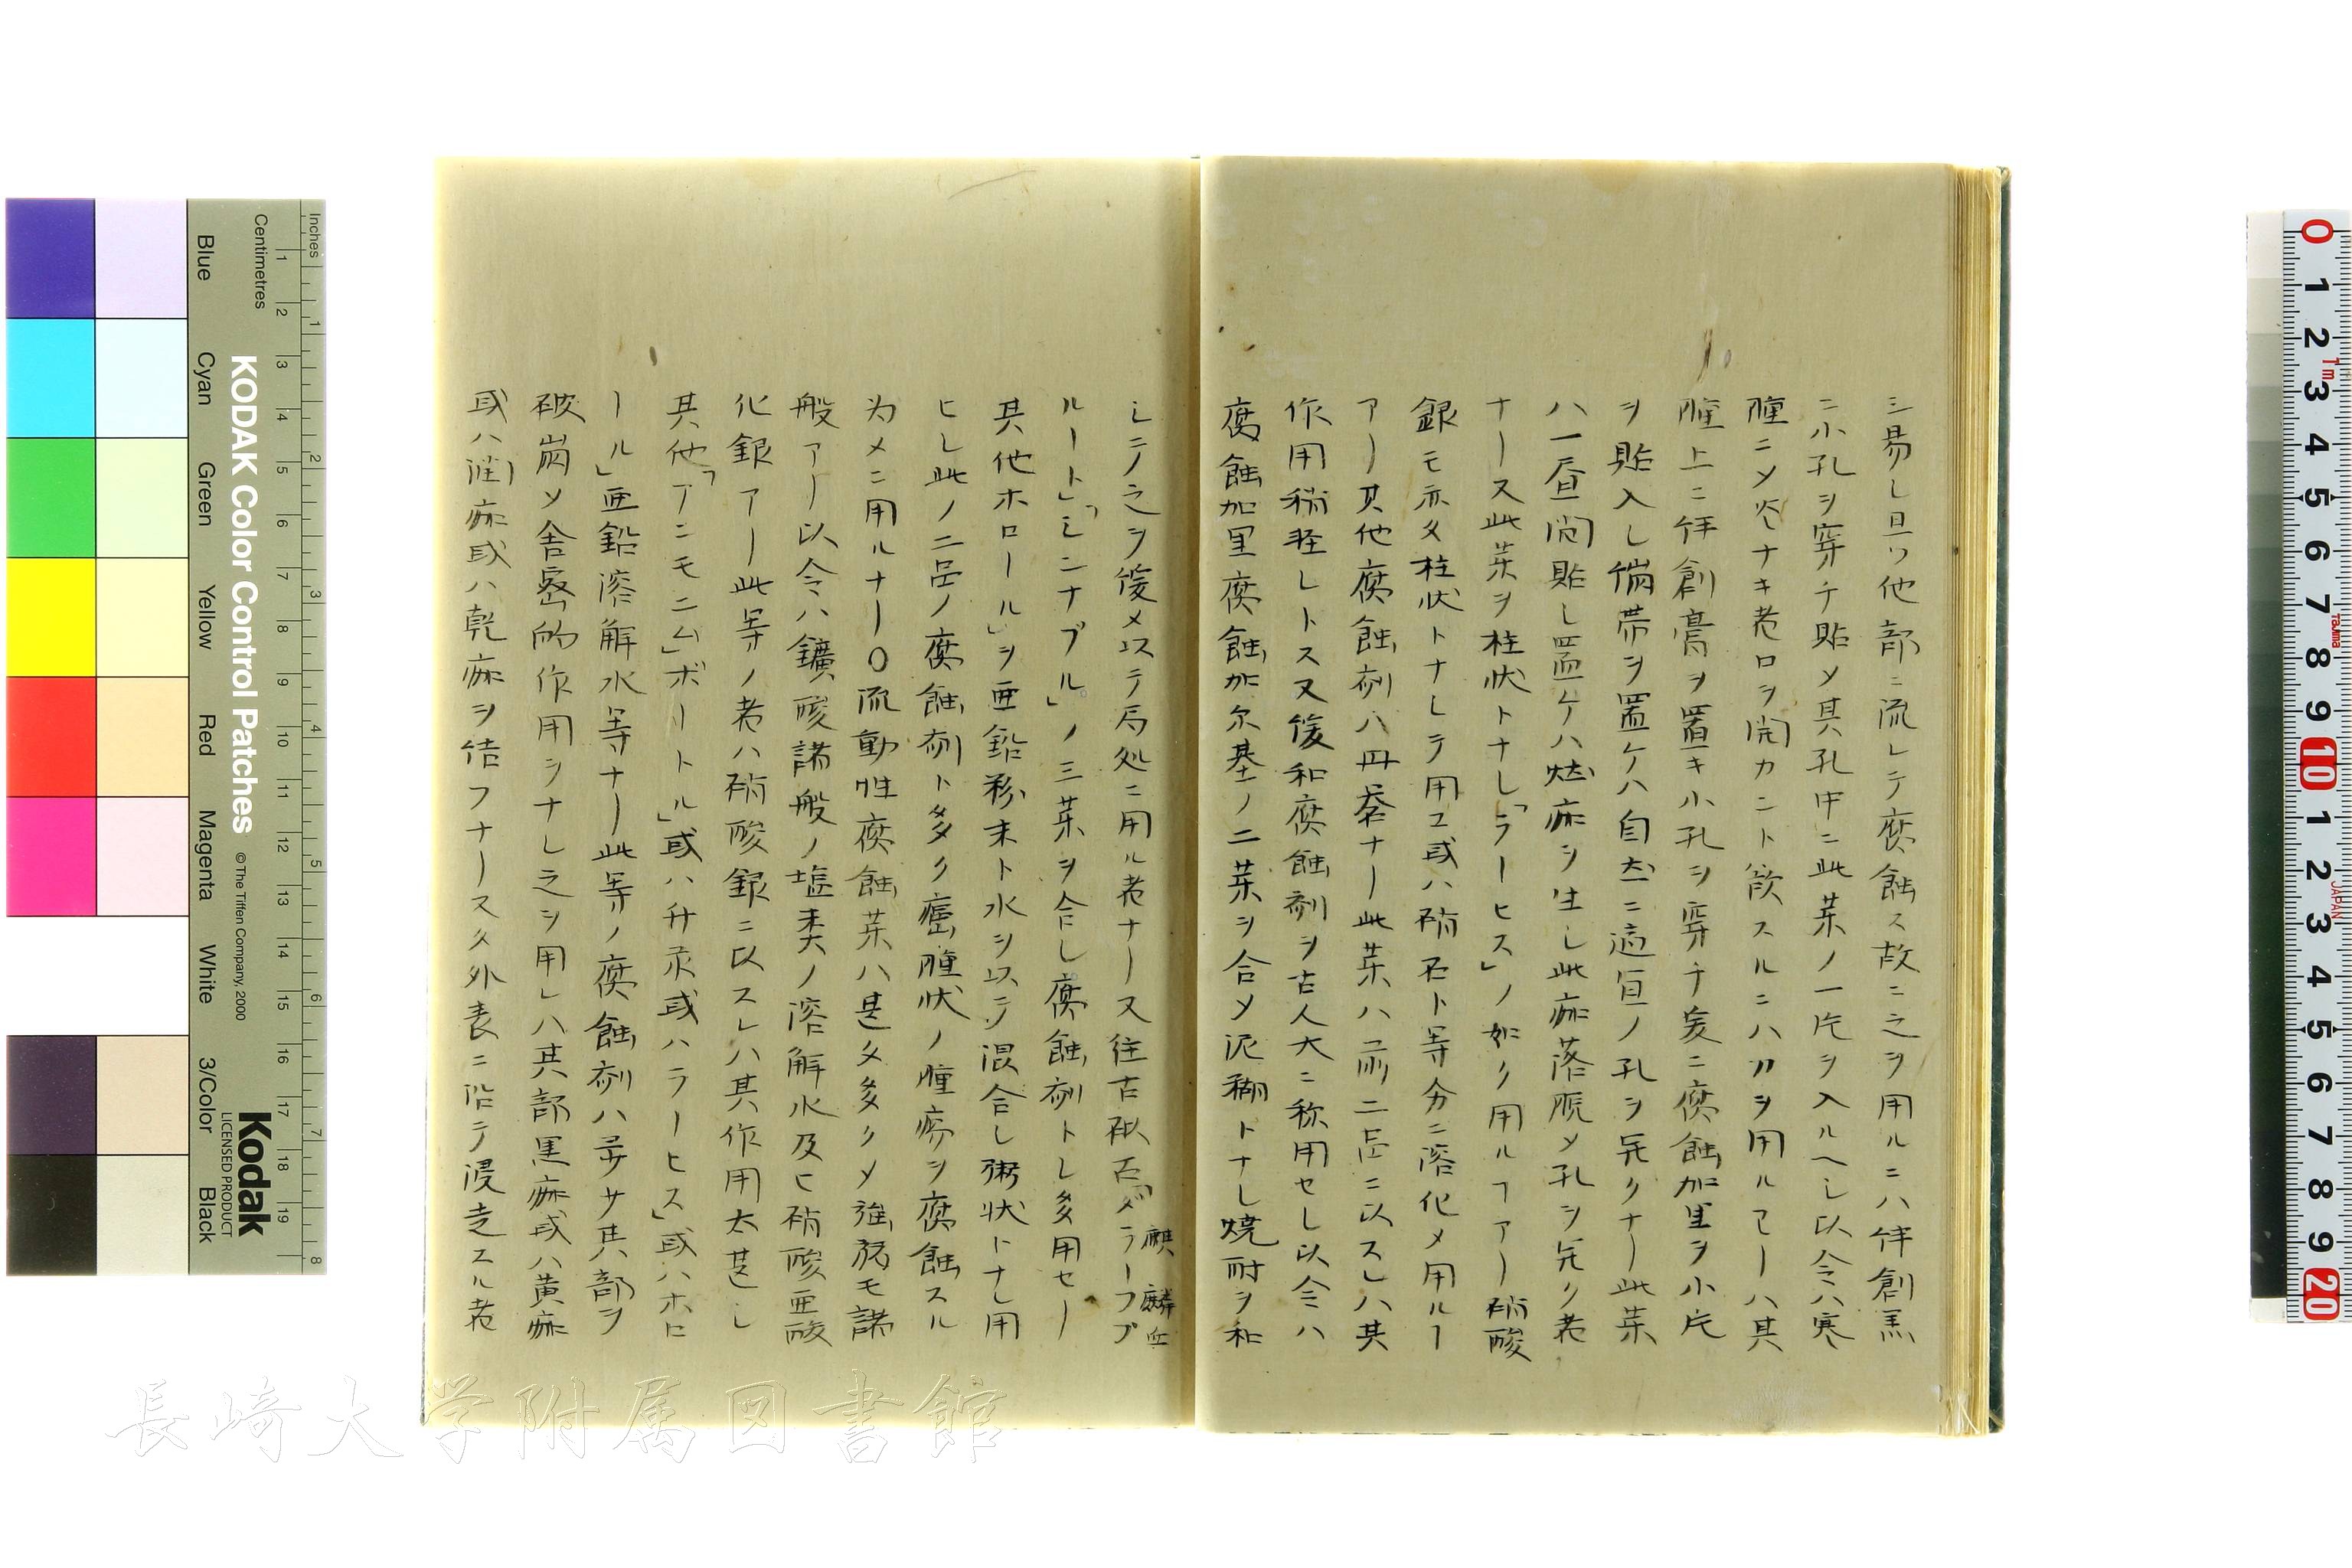 ミ易し且ツ他部ニ流レテ腐蝕ス故ニ之ヲ用ルニハ伴創膏
ニ小孔ヲ穿チ貼メ其孔中ニ此薬ノ一片ヲ入ルヘし以今ハ寒
腫ニメ炎ナキ者口ヲ開カント欲スルニハ刀ヲ用ルヿーハ其
腫上ニ伴創膏ヲ置キ小孔ヲ穿チ爰ニ腐蝕加里ヲ小片
ヲ貼入し備帯ヲ置ケハ自然ニ適宜ノ孔ヲ発クナー此薬
ハ一昼間貼し置ケハ痂ヲ生し此痂落脱メ孔ヲ発ク者
ナース此薬ヲ柱状トナし「ラーヒス」ノ如ク用ルヿアー硝酸
銀モ亦タ柱状トナレテ用ユ或ハ硝石ト等分ニ溶化メ用ルー
アー其他腐蝕剤ハ丹礬ナー此薬ハ前二品ニ以スレハ其
作用稍軽しトス又後和腐蝕剤ヲ古人大ニ称用セし以今ハ
腐蝕加里腐蝕加尓基ノ二薬ヲ合メ泥糊トナし焼耐ヲ和
しテノ之ヲ後メ以テ局処ニ用ル者ナー又往古砒石「ダラーフブ
麒麟血
ルート」「シンナブル」ノ三薬ヲ合し腐蝕剤トし多用セー
其他ホロール」ヲ亜鉛粉末ト水ヲ以テ混合し粥状トナし用
ヒし此ノ二品ノ腐蝕剤ト多ク癌腫状ノ腫瘍ヲ腐蝕スル
為メニ用ルナー〇流動性腐蝕薬ハ甚タ多クメ強弱モ諸
般アー以今ハ鑛酸諸般ノ塩類ノ溶解水及ヒ硝酸亜酸
化銀アー此等ノ者ハ硝酸銀ニ以スレハ其作用太甚し
其他「アンモニム」ボートル」或ハ升汞或ハラーヒス」或ハホロ
ール」亜鉛溶解水等ナー此等ノ腐蝕剤ハ尋サ其部ヲ
破崩メ舎密的作用ヲナし之ヲ用レハ其部黒痂或ハ黄痂
或ハ潤痂或ハ乾痂ヲ結フナース久外表ニ沿テ浸走スル者
Inches
Centimetres
KODAK Color Control Patches
© The Tiffen Company, 2000
Kodak
LICENSED PRODUCT
Blue
Cyan
Green
Yellow
Red
Magenta
White
3/Color
Black
長崎大学附属図書館